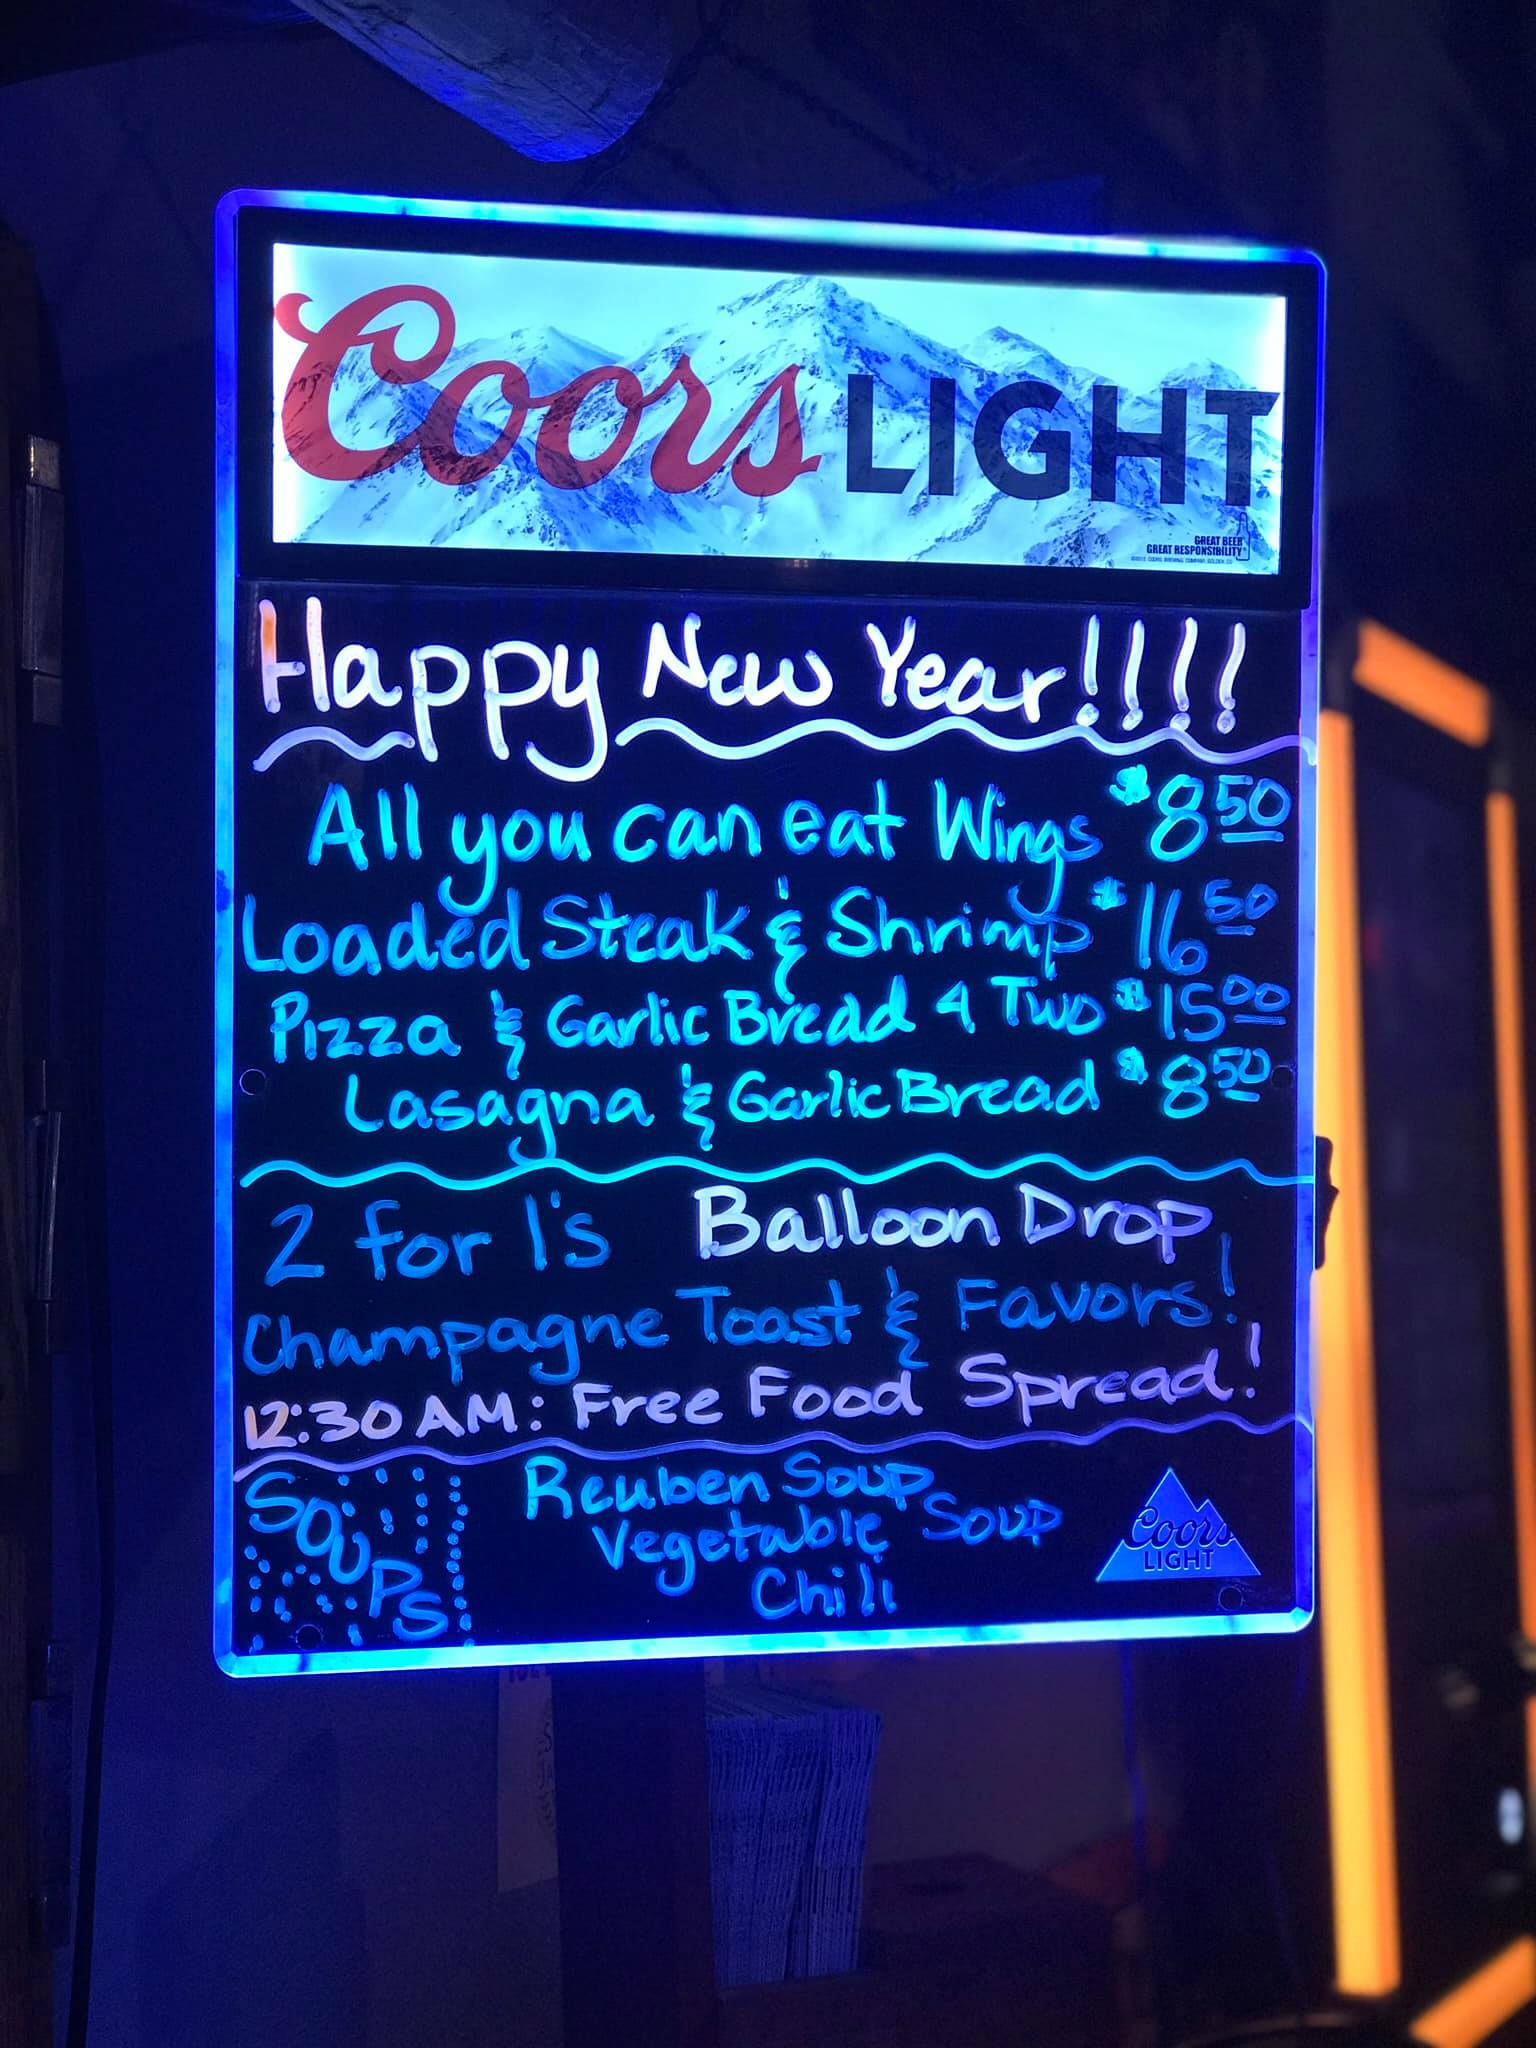 Coors LIGHT
GREAT BEER
GREAT RESPONSIBILITY
Happy New Year!!!!
All you can eat Wings $8.50
Loaded Steak & Shrimp $16.50
Pizza & Garlic Bread 4 Two $15.00
Lasagna & Garlic Bread $8.50
2 for 1's Balloon Drop
Champagne Toast & Favors!
12:30 AM: Free Food Spread!
Soups
Reuben Soup
Vegetable Soup
Chili
Coors
LIGHT